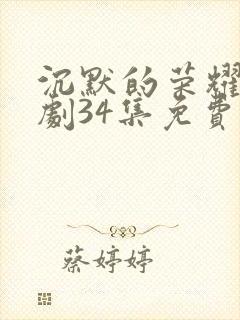 沉默的荣耀
劇34集免費
蔡婷婷